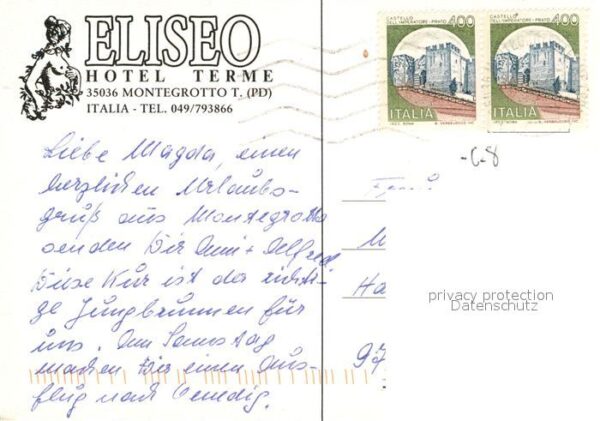 ELISEO
HOTEL TERME
35036 MONTEGROTTO T. (PD)
ITALIA - TEL. 049/793866
CASTELLO DELL'IMPERATORE - PRATO 400
ITALIA
CASTELLO DELL'IMPERATORE - PRATO 400
ITALIA
Liebe Magda, einen
herzlichen Urlaubs-
gruß aus Montegrotto
senden Dir Anni + Alfred
Diese Kur ist der richti-
ge Jungbrunnen für
uns. Am Samstag
machen wir einen Aus-
flug nach Venedig.
-C-8
Ha
97
privacy protection
Datenschutz